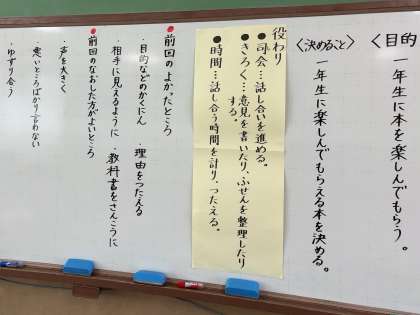 〈目的
一年生に本を楽しんでもらう。
〈決めること〉
一年生に楽しんでもらえる本を決める。
役わり
●司会…話し合いを進める。
●きろく…意見を書いたり、ふせんを整理したり
する。
●時間…話し合う時間を計り、つたえる。
●前回のよかったところ
・目的などのかくにん　理由をつたえる
・相手に見えるように・教科書をさんこうに
●前回のなおした方がよいところ
・声を大きく
・悪いところばかり言わない
・ゆずり合う